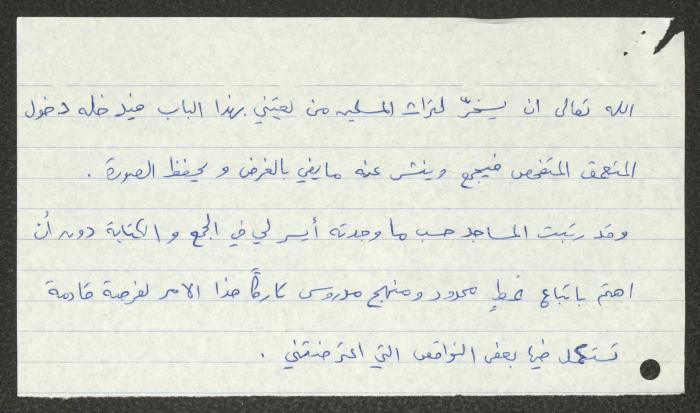 الله تعالى ان يسخّر لتراث المسلمين من يعتني بهذا الباب فيدخله دخول
المتعمق المتفحص فيجمع وينشر عنه ما يفي بالغرض و يحفظ الصورة .
وقد رتبت المساجد حسب ما وجدته أيسر لي في الجمع و الكتابة دون أن
اهتم باتباع خطٍ محدود ومنهج مدروس تاركاً هذا الامر لفرصة قادمة
تستكمل فيها بعض النواقص التي اعترضتني .